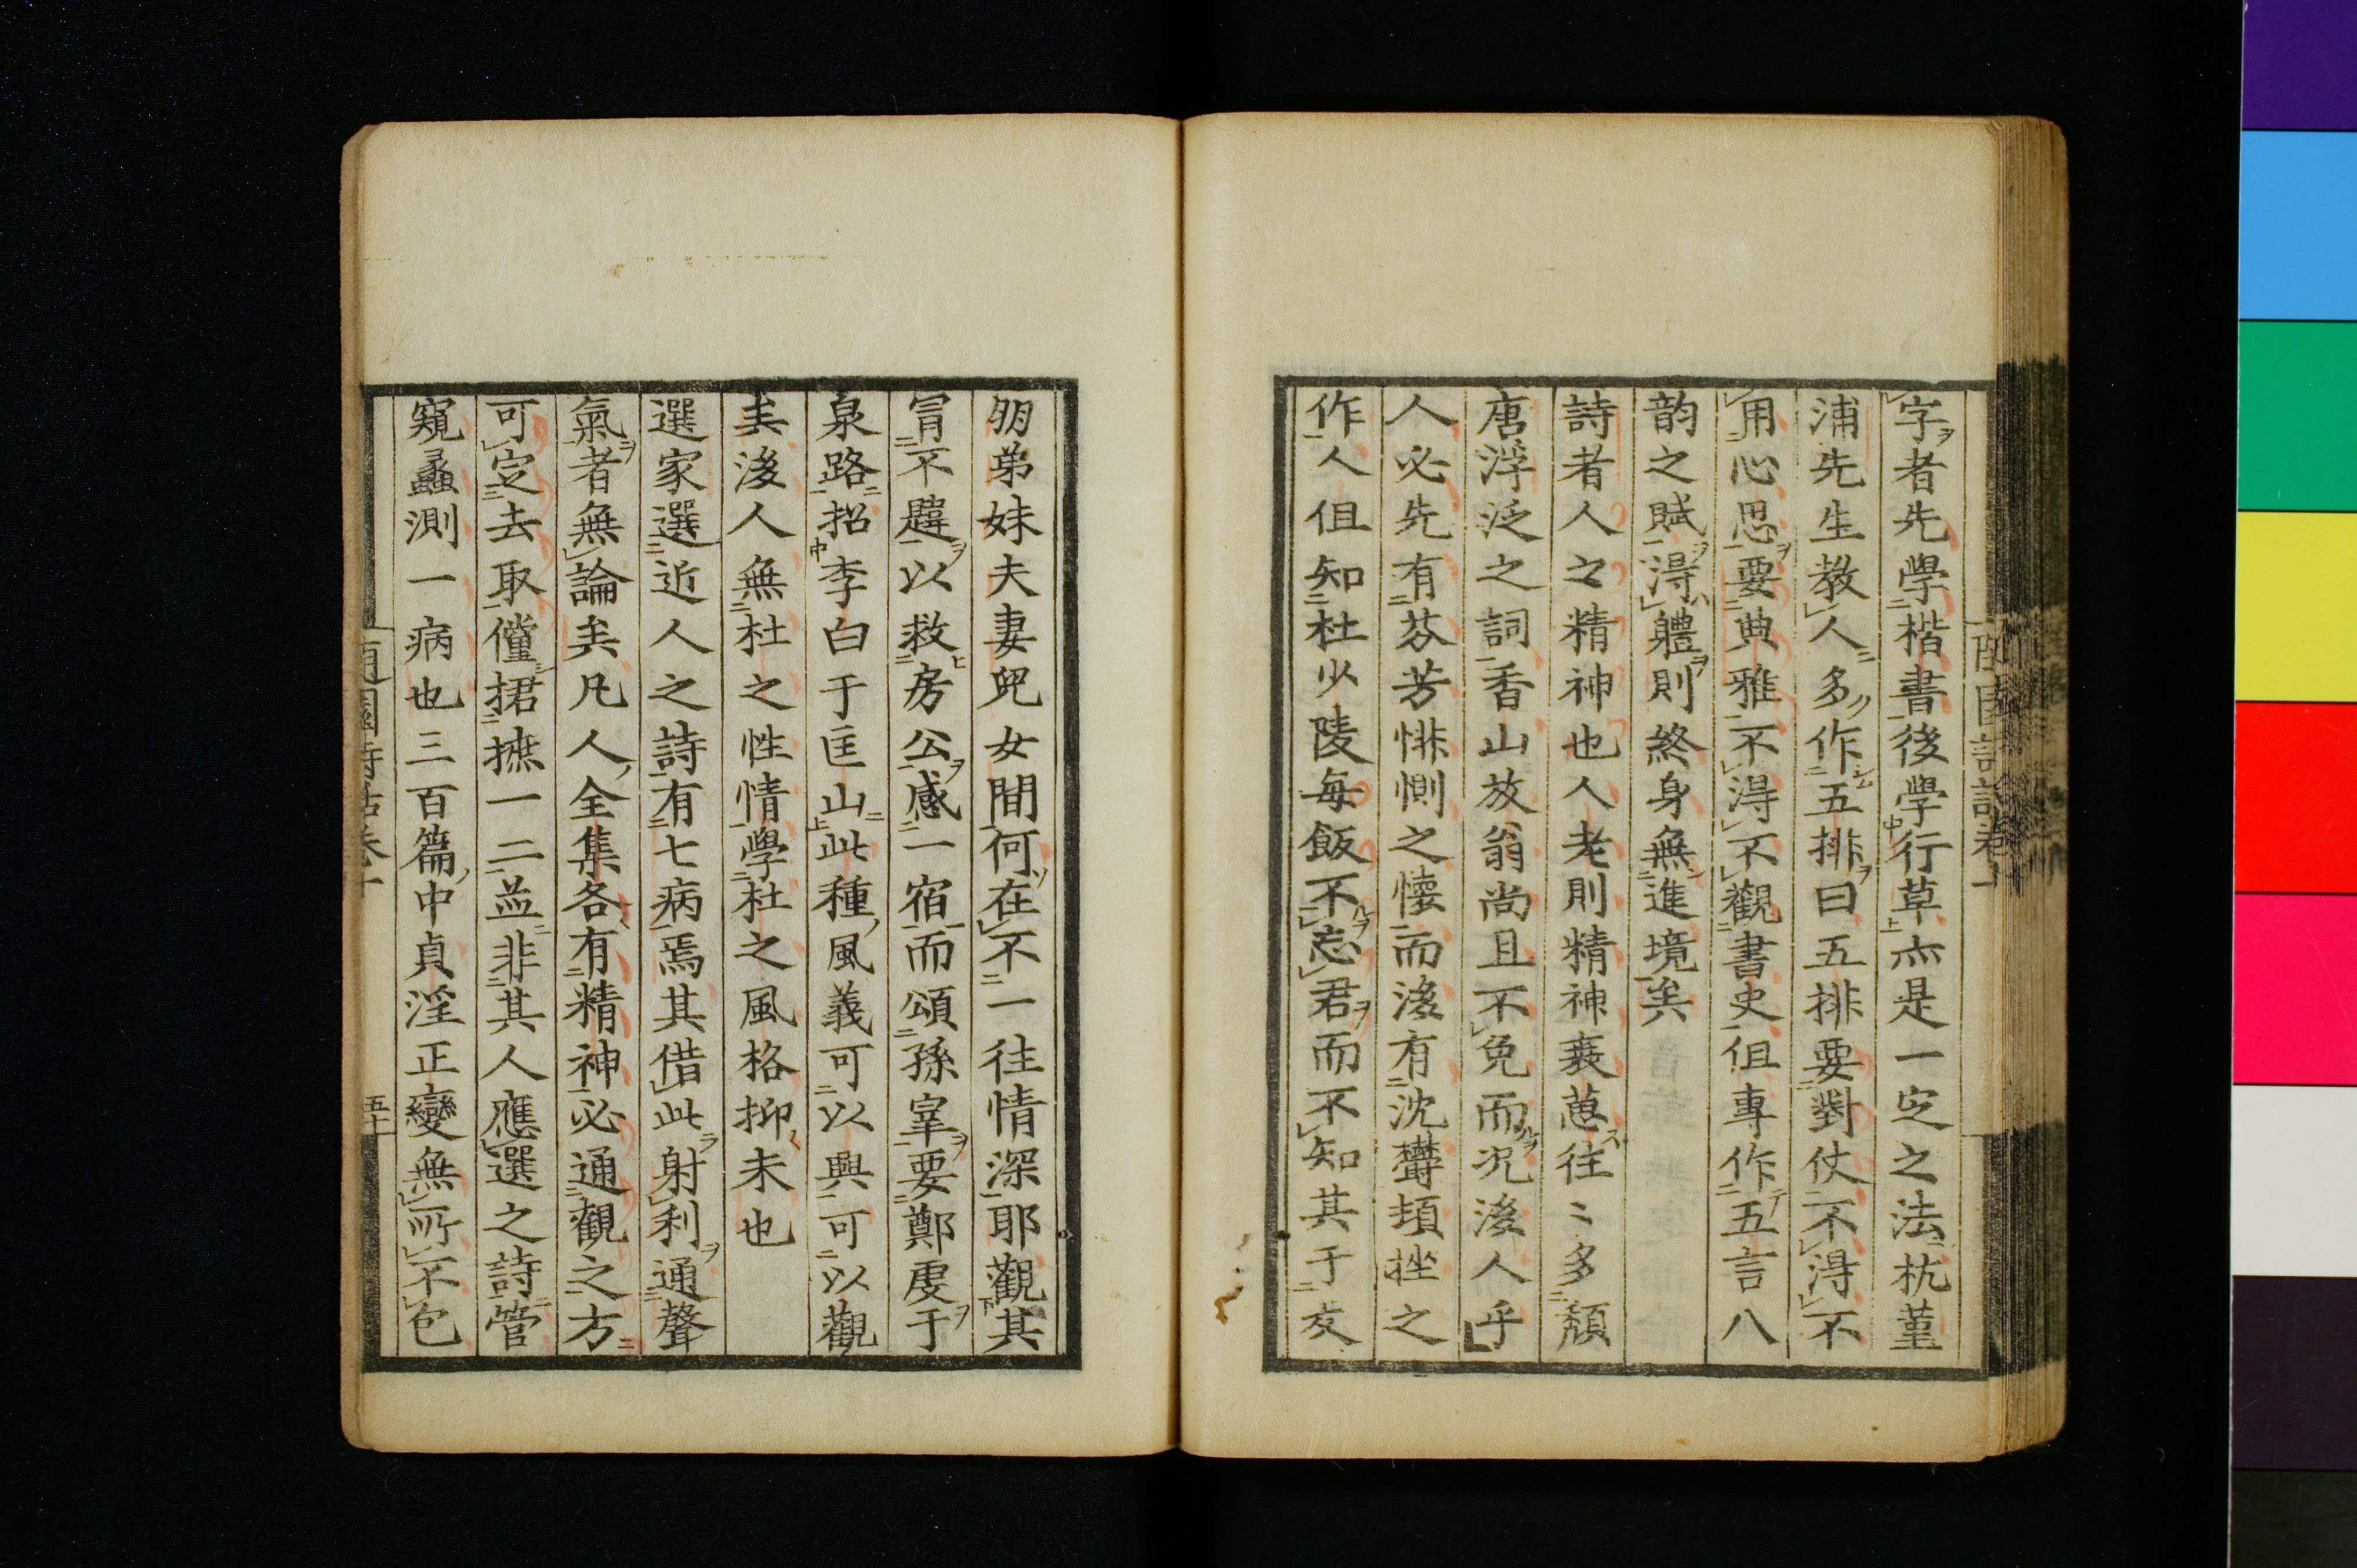 字者先學楷書後學行草亦是一定之法杭菫
浦先生教人多作五排曰五排要對仗不得不
用心思要典雅不得不觀書史但專作五言八
韵之賦得體則終身無進境矣
詩者人之精神也人老則精神衰葸往〻多頽
唐浮泛之詞香山放翁尚且不免而况後人乎
人必先有芬芳悱惻之懐而後有沈欝頓挫之
作人但知杜少陵每飯不忘君而不知其于友
朋弟妹夫妻兒女間何在不一往情深耶觀其
冐不韙以救房公感一宿而頌孫宰要鄭虔于
泉路招李白于匡山此種風義可以興可以觀
矣後人無杜之性情學杜之風格抑末也
選家選近人之詩有七病焉其借此射利通聲
氣者無論矣凡人全集各有精神必通觀之方
可定去取僅捃摭一二並非其人應選之詩管
窺蠡測一病也三百篇中貞淫正變無所不包
隨園詩話卷十
五十